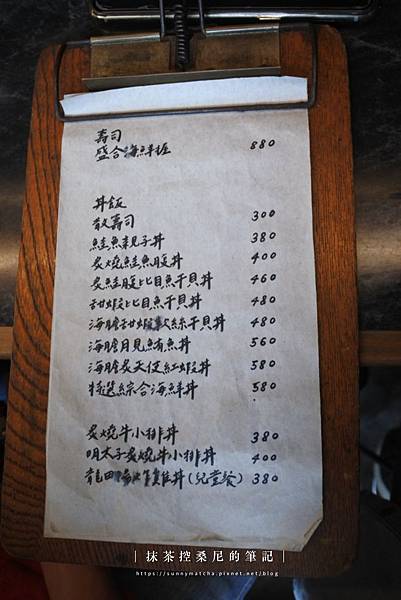 壽司
盛合海鮮握 880
丼飯
散壽司 300
鮭魚親子丼 380
炙燒鮭魚肚丼 400
炙鮭肚比目魚干貝丼 460
甜蝦比目魚干貝丼 480
海膽甜蝦軟絲干貝丼 480
海膽月見鮪魚丼 560
海膽炙天使紅蝦丼 580
特選綜合海鮮丼 580
炙燒牛小排丼 380
明太子炙燒牛小排丼 400
龍田揚炸雞丼(兒童餐) 380
| 抹茶控桑尼的筆記 |
https://sunnymatcha.pixnet.net/blog